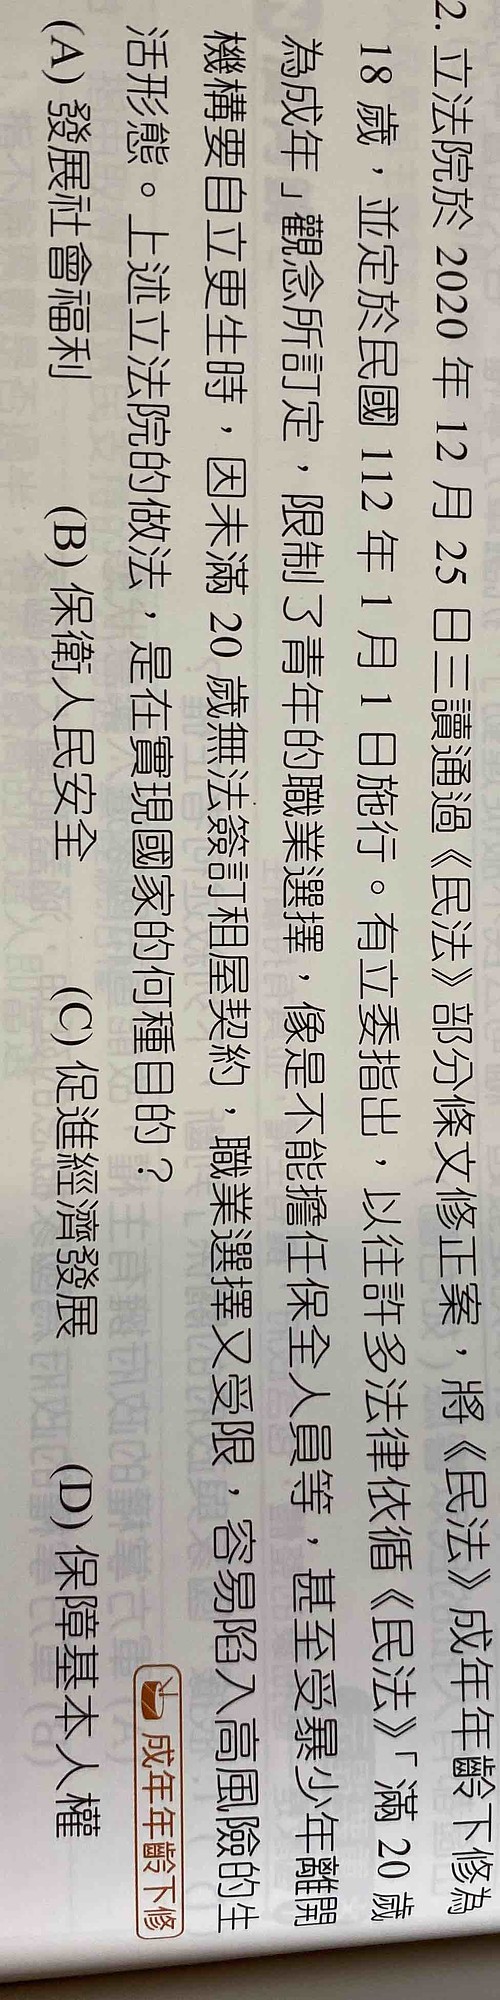 2. 立法院於 2020 年 12 月 25 日三讀通過《民法》部分條文修正案，將《民法》成年年齡下修為
18 歲，並定於民國 112 年 1 月 1 日施行。有立委指出，以往許多法律依循《民法》「滿 20 歲
為成年」觀念所訂定，限制了青年的職業選擇，像是不能擔任保全人員等，甚至受暴少年離開
機構要自立更生時，因未滿 20 歲無法簽訂租屋契約，職業選擇又受限，容易陷入高風險的生
活形態。上述立法院的做法，是在實現國家的何種目的？
成年年齡下修
(A) 發展社會福利 (B) 保衛人民安全 (C) 促進經濟發展 (D) 保障基本人權